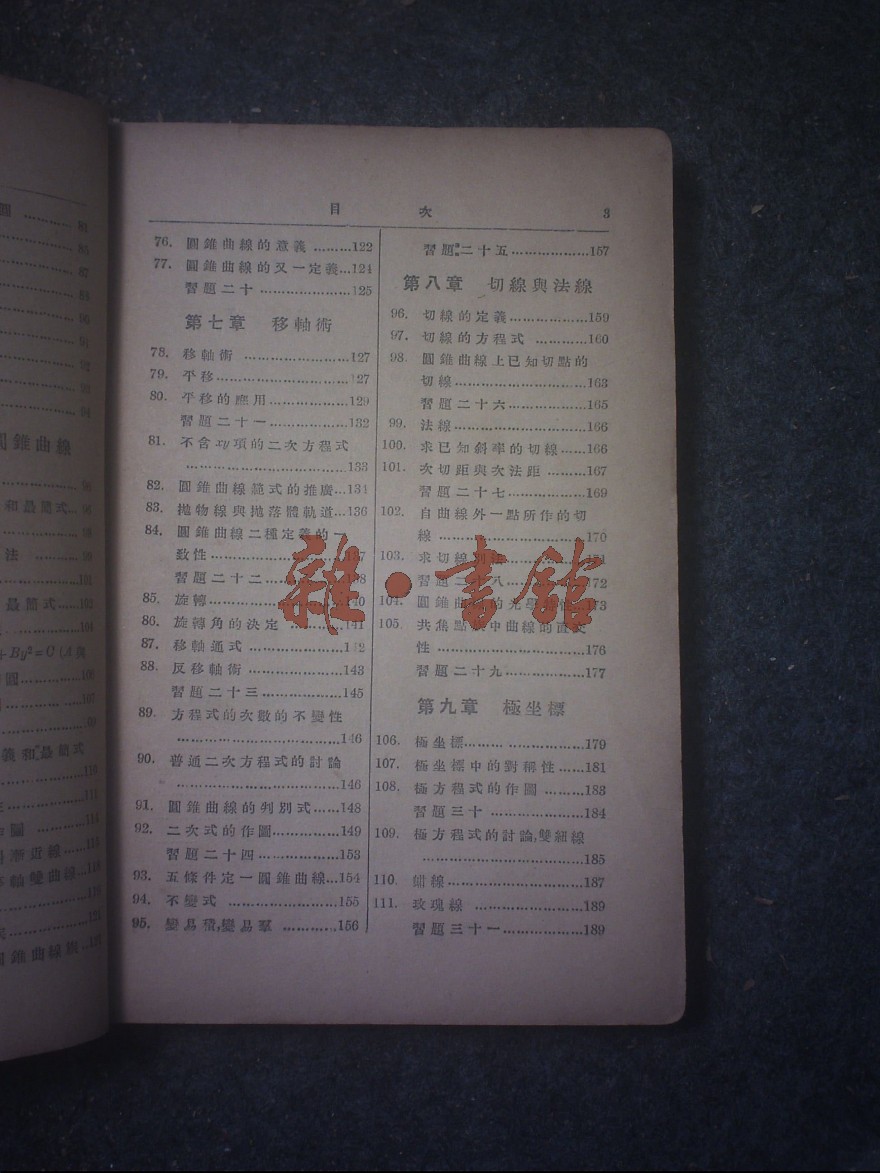 目 次 3
76. 圓錐曲線的意義 .........122
77. 圓錐曲線的又一定義...124
習題二十 .....................125
第七章 移軸術
78. 移軸術 .....................127
79. 平移...........................127
80. 平移的應用..................129
習題二十一..................132
81. 不含xy項的二次方程式
.................................133
82. 圓錐曲線範式的推廣...134
83. 拋物線與拋落體軌道...136
84. 圓錐曲線二種定義的一
致性...........................137
習題二十二..................138
85. 旋轉...........................140
86. 旋轉角的決定 ...............141
87. 移軸通式 .....................142
88. 反移軸術 .....................143
習題二十三..................145
89. 方程式的次數的不變性
.................................146
90. 普通二次方程式的討論
.................................146
91. 圓錐曲線的判別式......148
92. 二次式的作圖...............149
習題二十四..................153
93. 五條件定一圓錐曲線...154
94. 不變式 .....................155
95. 變易積,變易羣 ............156
習題二十五..................157
第八章 切線與法線
96. 切線的定義..................159
97. 切線的方程式 ............160
98. 圓錐曲線上已知切點的
切線...........................163
習題二十六..................165
99. 法線...........................166
100. 求已知斜率的切線......166
101. 次切距與次法距 .........167
習題二十七..................169
102. 自曲線外一點所作的切
線 ...........................170
103. 求切線 171
習題二十八..................172
104. 圓錐曲線的光學 173
105. 共焦點 中曲線的直交
性 ...........................176
習題二十九..................177
第九章 極坐標
106. 極坐標........................179
107. 極坐標中的對稱性 ......181
108. 極方程式的作圖 .........183
習題三十 .....................184
109. 極方程式的討論,雙紐線
.................................185
110. 蚶線...........................187
111. 玫瑰線 .....................189
習題三十一..................189
圓錐曲線
和最簡式...
法
最簡式......103
+By²=C (A與
圓
義和最簡式
作圖
漸近線
等軸雙曲線...
圓錐曲線族...
雜·書館